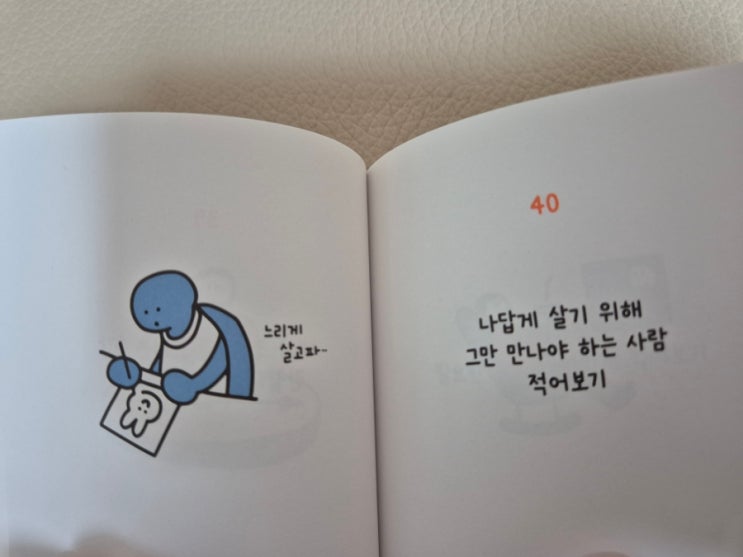 느리게
살고파~
40
나답게 살기 위해
그만 만나야 하는 사람
적어보기